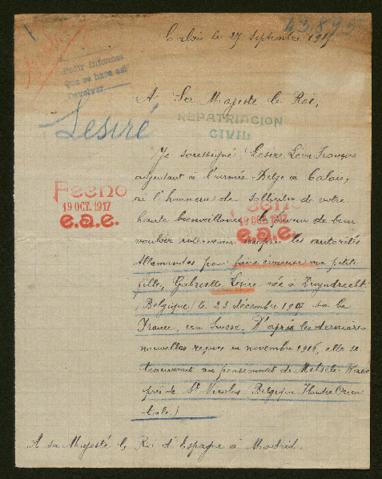 43.895
Calais le 27 Septembre 1917
Pedir informes
que se hace así
Devolver
A Sa Majesté le Roi,
REPATRIACION
CIVIL
Lesiré
Je soussigné Lesire Léon François
adjudant à l'armée Belge à Calais,
ai l'honneur de solliciter de votre
haute bienveillance la faveur de bien
vouloir intervenir auprès des autorités
Fecho
19 OCT. 1917
e.a.e.
Fecho
19 OCT. 1917
e.a.e.
Allemandes pour faire ramener ma petite
fille, Gabrielle Lesire née à
(Belgique) le 23 décembre
France, ou Suisse. D'après les dernières
nouvelles reçues en novembre 1916, elle se
trouverait au pensionnat de
près de St Nicolas Belgique Flandre Orien
tale.)
A sa Majesté le Roi d'Espagne à Madrid.